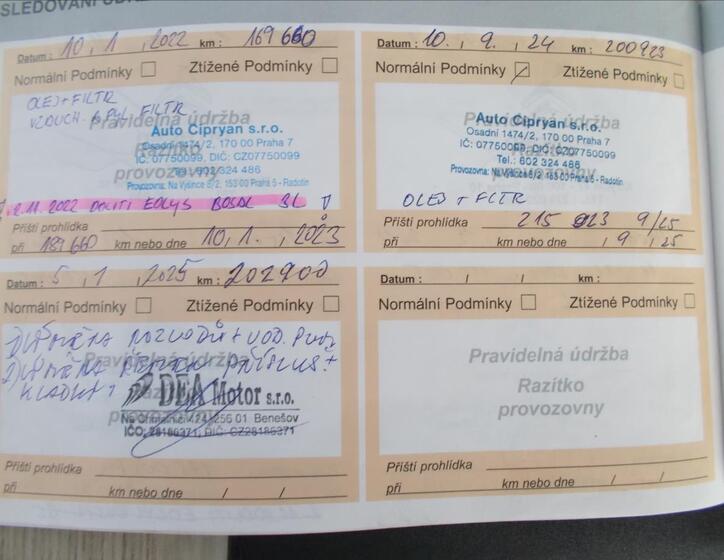 SLEDOVÁNÍ
Datum : 10, 1 , 2022 km : 169 660
Normální Podmínky Ztížené Podmínky
OLEJ + FILTR
VZDUCH + PYL FILTR
Pravidelná údržba
Razítko
provozovny
Auto Cipryan s.r.o.
Osadní 1474/2, 170 00 Praha 7
IČ: 07750099, DIČ: CZ07750099
Tel.: 602 324 486
Provozovna: Na Výšince 8/2, 153 00 Praha 5 - Radotín
2.11.2022 DOLITI EOLYS BOSAL 3L
Příští prohlídka
při 189 660 km nebo dne 10, 1. , 2023
Datum : 10. , 9. , 24 km : 200923
Normální Podmínky Ztížené Podmínky
Pravidelná údržba
Razítko
provozovny
Auto Cipryan s.r.o.
Osadní 1474/2, 170 00 Praha 7
IČ: 07750099, DIČ: CZ07750099
Tel.: 602 324 486
Provozovna: Na Výšince 8/2, 153 00 Praha 5 - Radotín
OLEJ + FILTR
Příští prohlídka 215 923 9/25
při km nebo dne , 9 , 25
Datum : 5 , 1 , 2025 km : 202900
Normální Podmínky Ztížené Podmínky
ROZVODŮ + VOD.
Pravidelná údržba
Razítko
provozovny
DEA Motor s.r.o.
256 01 Benešov
IČO: 28186371, DIČ: CZ28186371
Příští prohlídka
při km nebo dne / /
Datum : / / km :
Normální Podmínky Ztížené Podmínky
Pravidelná údržba
Razítko
provozovny
Příští prohlídka
při km nebo dne / /